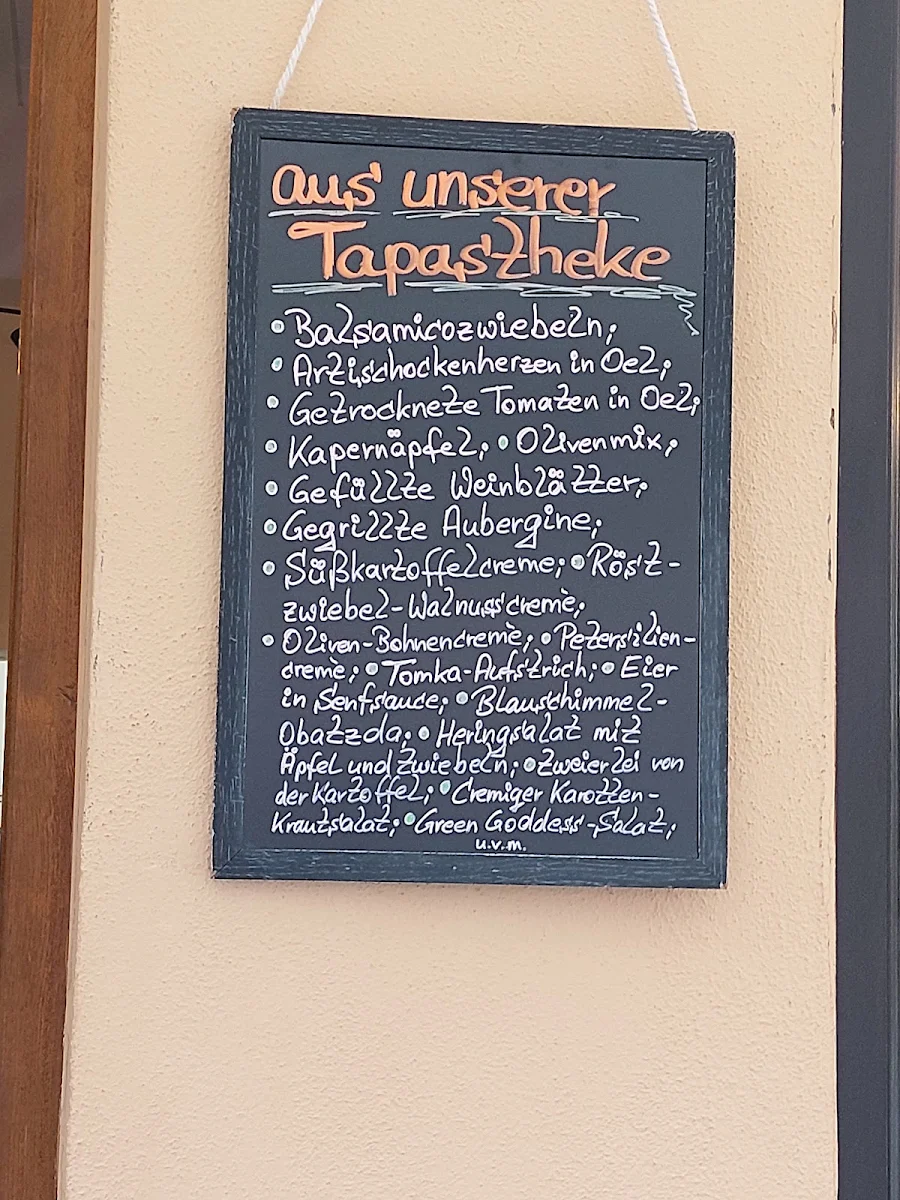 aus unserer
Tapastheke
• Balsamicozwiebeln;
• Artischockenherzen in Oel;
• Getrocknete Tomaten in Oel;
• Kapernäpfel; • Olivenmix;
• Gefüllte Weinblätter;
• Gegrillte Aubergine;
• Süßkartoffelcreme; • Röst-
zwiebel-Walnusscreme;
• Oliven-Bohnencreme; • Petersilien-
creme; • Tomka-Aufstrich; • Eier
in Senfsauce; • Blauschimmel-
Obatzda; • Heringsalat mit
Äpfel und Zwiebeln; • Zweierlei von
der Kartoffel; • Cremiger Karotten-
Krautsalat; • Green Goddess-Salat;
u.v.m.